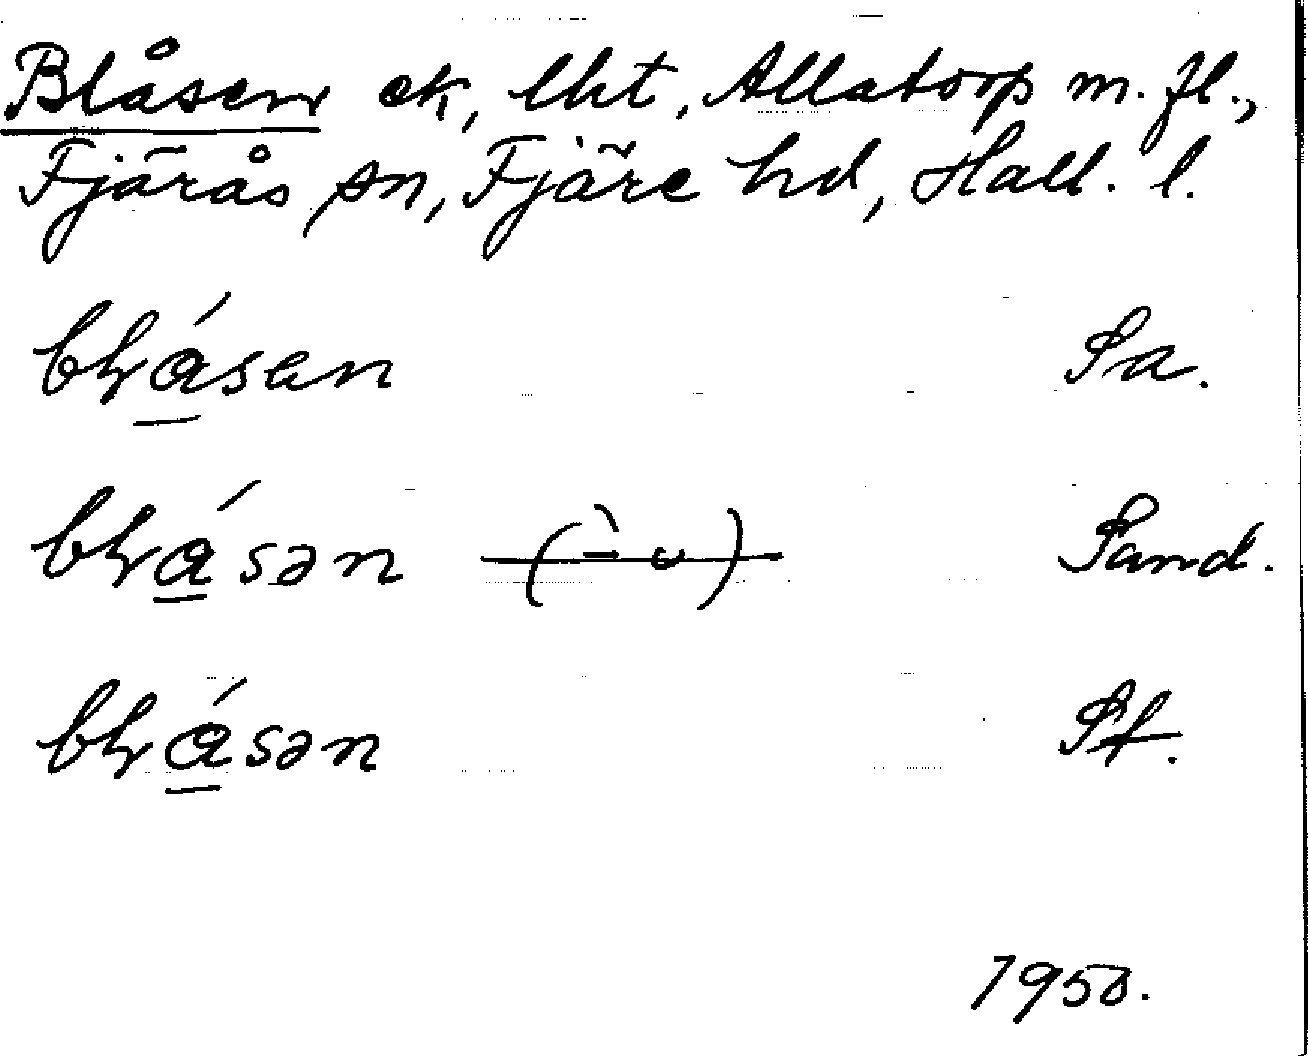 Blåsen ek, lht, Allatorp m. fl.,
Fjärås sn, Fjäre hd, Hall. l.
bɽásen Sa.
bɽásən (-̀ ᴗ) Sand.
bɽásən Sf.
1950.